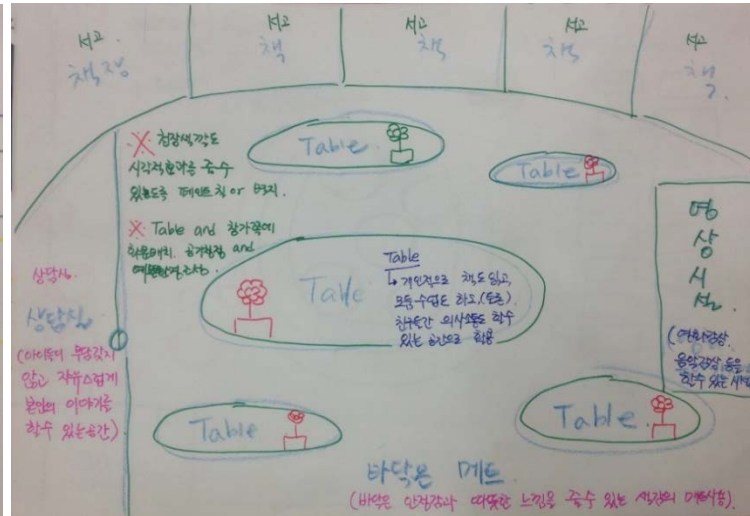 서고
책장
서고
책
서고
책
서고
책
서고
책
※ 천장색깔도
시각적효과를 줄수
있도록 페인트칠 or 벽지.
※ Table and 창가쪽에
화분배치. 공기청정 and
Table
Table
Table
Table
↳ 개인적으로 책도 읽고,
모둠수업도 하고, (토론)
친구들간 의사소통도 할수
있는 공간으로 활용
Table
영
상
시
설
(영화감상,
음악감상 등을
할수 있는
상담실.
상담실
(아이들이 부담갖지
않고 자유스럽게
본인의 이야기를
할수 있는공간)
Table
Table
바닥은 메트
(바닥은 안정감과 따뜻한 느낌을 줄수 있는 색감의 메트사용)